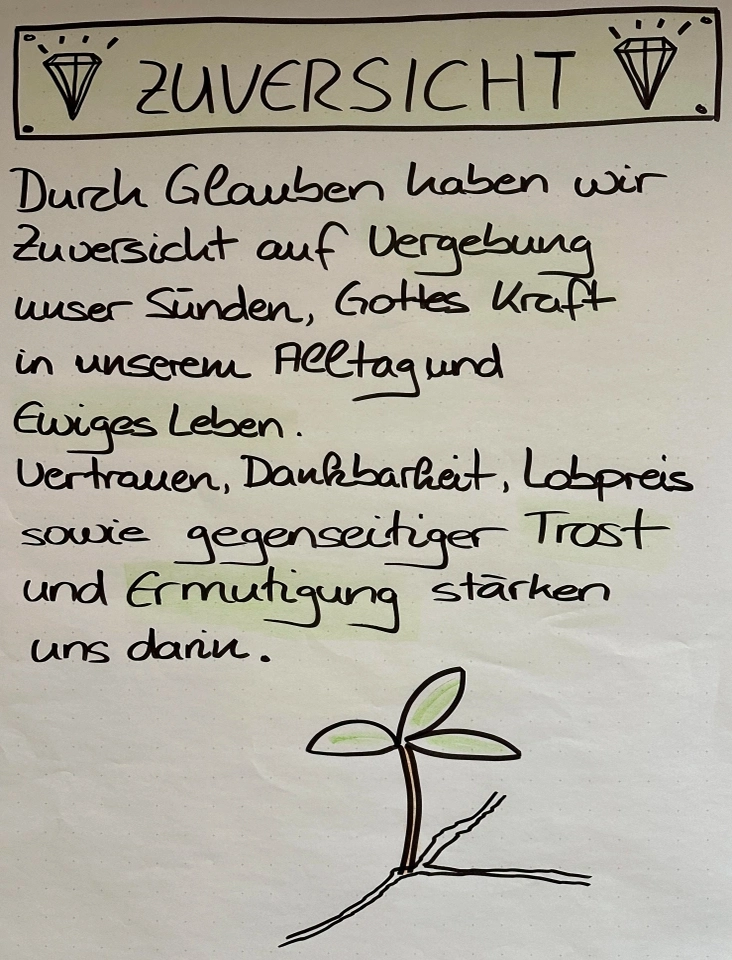 ZUVERSICHT
Durch Glauben haben wir
Zuversicht auf Vergebung
unser Sünden, Gottes Kraft
in unserem Alltag und
Ewiges Leben.
Vertrauen, Dankbarkeit, Lobpreis
sowie gegenseitiger Trost
und Ermutigung stärken
uns darin.